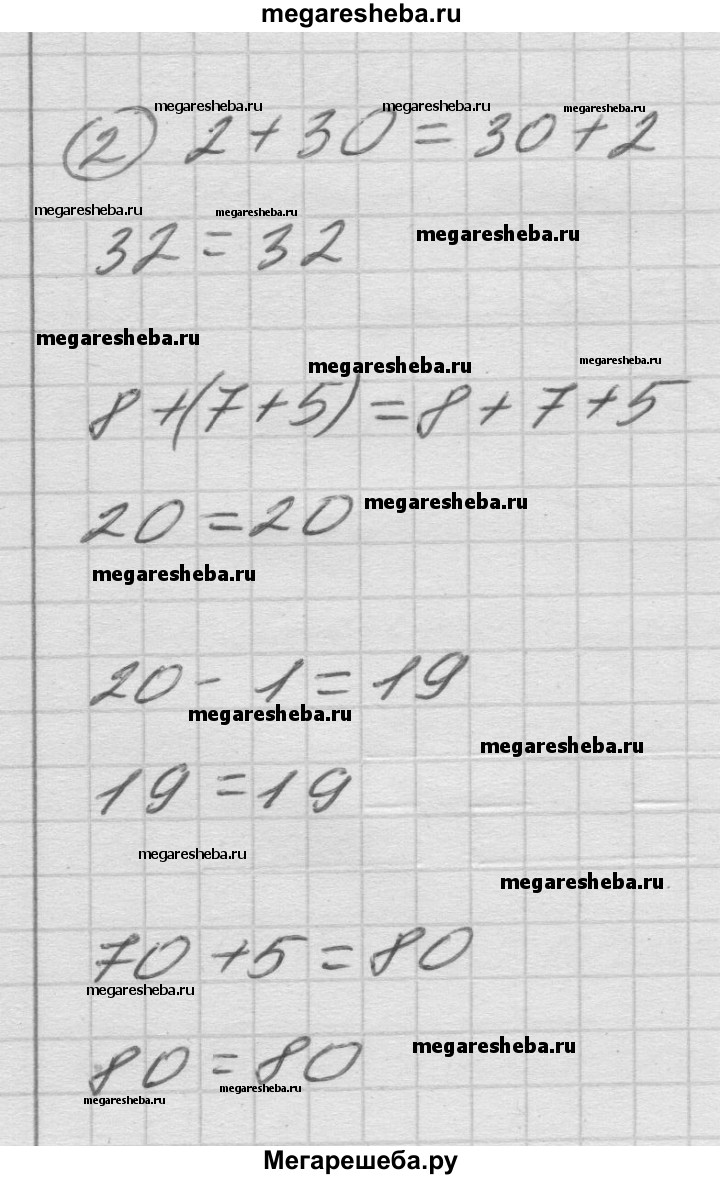 megaresheba.ru
megaresheba.ru megaresheba.ru megaresheba.ru
2 2 + 30 = 30 + 2
megaresheba.ru megaresheba.ru
megaresheba.ru
32 = 32
megaresheba.ru
megaresheba.ru megaresheba.ru
8 + (7 + 5) = 8 + 7 + 5
megaresheba.ru
20 = 20
megaresheba.ru
20 - 1 = 19
megaresheba.ru
megaresheba.ru
19 = 19
megaresheba.ru
megaresheba.ru
70 + 5 = 80
megaresheba.ru
megaresheba.ru
80 = 80
megaresheba.ru
megaresheba.ru
Мегарешеба.ру